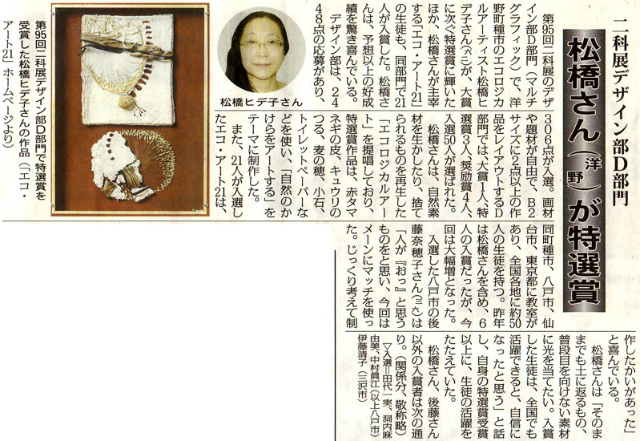 二科展デザイン部D部門
松橋さん（洋野）が特選賞
松橋ヒデ子さん
第95回二科展デザイン部D部門で特選賞を
受賞した松橋ヒデ子さんの作品（エコ・
アート21 ホームページより）
第95回二科展のデザ
イン部D部門（マルチ
グラフィック）で、洋
野町種市のエコロジカ
ルアーティスト松橋ヒ
デ子さんが、大賞
に次ぐ特選賞に輝いた
ほか、松橋さんが主宰
する「エコ・アート21」
の生徒も、同部門で21
人が入賞した。松橋さ
んは、予想以上の好成
績を驚き喜んでいる。
デザイン部は、24
48点の応募があり、
306点が入選。画材
や題材が自由で、B2
サイズに2点以上の作
品をレイアウトするD
部門では大賞1人、特
選賞3人、奨励賞4人、
入選50人が選ばれた。
松橋さんは、自然素
材を生かしたり、捨て
られるものを再生した
「エコロジカルアー
ト」を提唱しており、
特選賞作品は、赤タマ
ネギの皮、キュウリの
つる、麦の穂、小石、
トイレットペーパーな
どを使い、「自然のか
けらをアートする」を
テーマに制作した。
また、21人が入選し
たエコ・アート21は、
同町種市、八戸市、仙
台市、東京都に教室が
あり、全国各地に約50
人の生徒を持つ。昨年
は松橋さんを含め、6
人の入賞だったが、今
回は大幅増となった。
入選した八戸市の後
藤奈穂子さんは
「人が『おっ』と思う
ものをと思い、今回は
メーンにマッチを使っ
た。じっくり考えて制
作したかいがあった」
と喜んでいる。
松橋さんは「そのま
までも土に返るもの、
普段目を向けない素材
に光を当てたい。入賞
した生徒は、全国でも
活躍できると、自信に
なったと思う」と話
し、自身の特選賞受賞
以上に、生徒の活躍を
たたえていた。
松橋さん、後藤さん
以外の入賞者は次の通
り。（関係分、敬称略）
▽入選＝田代一実、
由美、中村眞江（以上八戸市）
伊藤清子（三沢市）